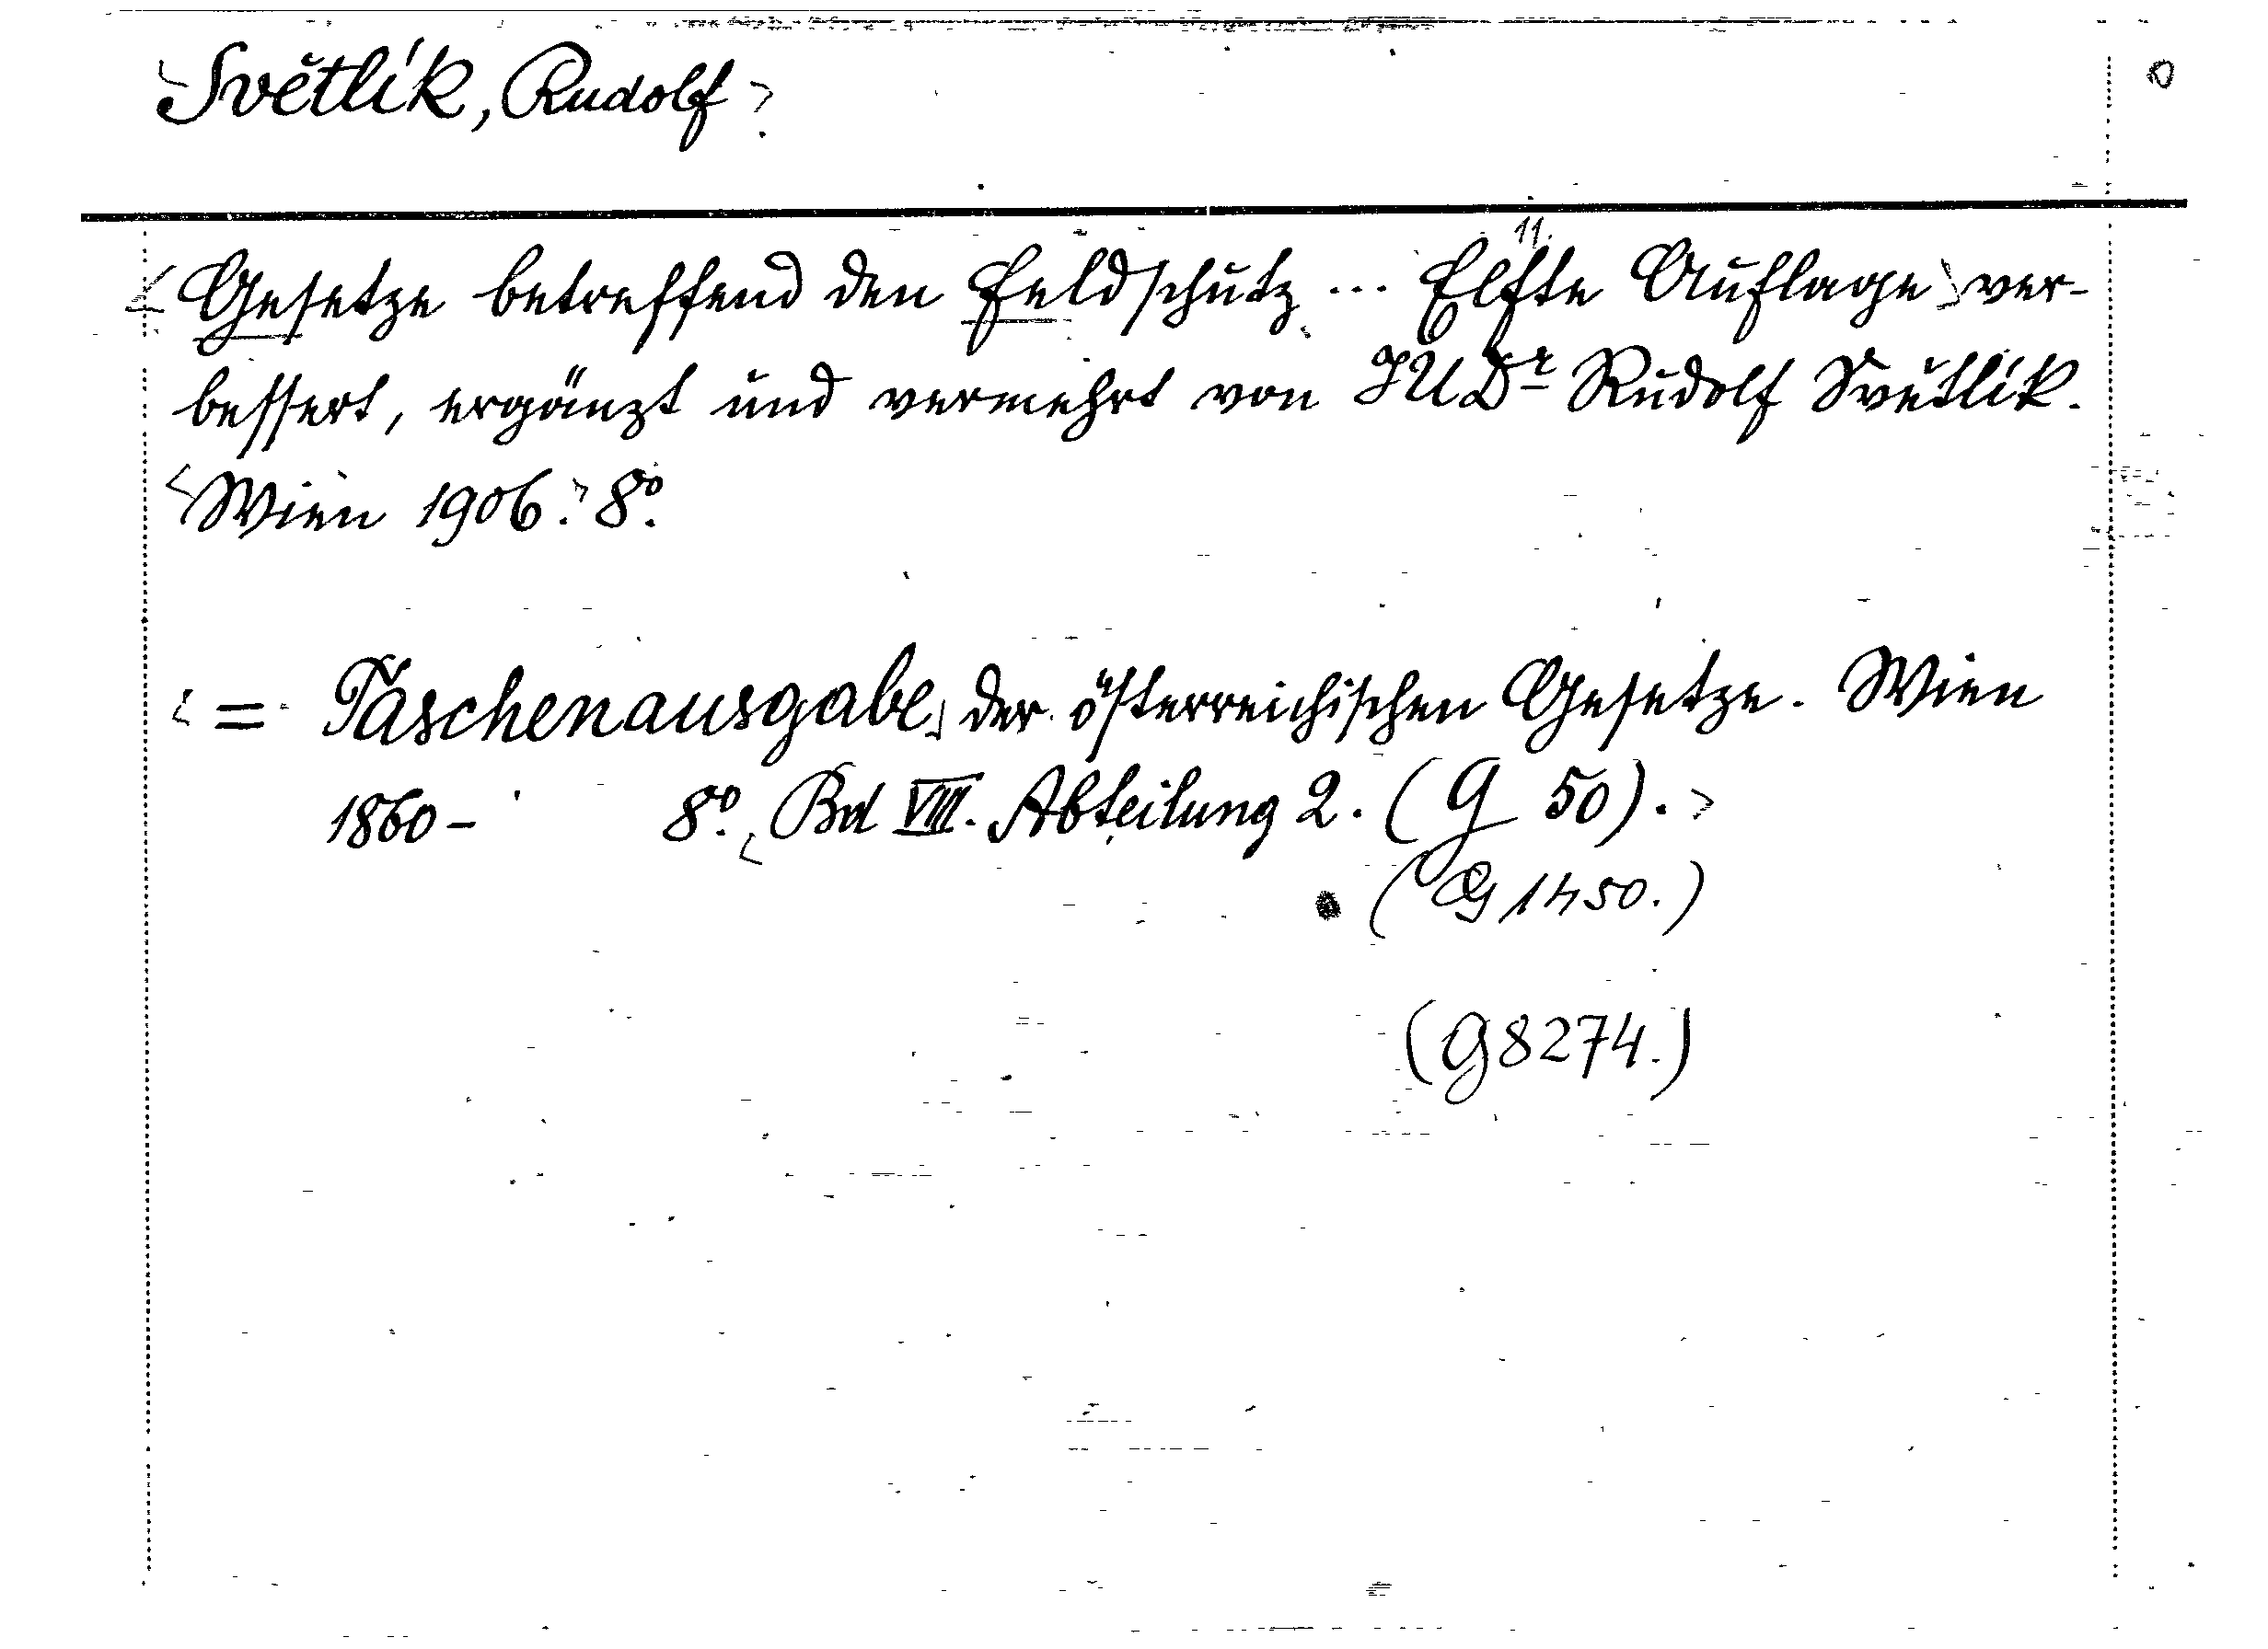 <Světlík, Rudolf>.
<Gesetze betreffend den Feldschutz ... Elfte 11. Auflage> ver-
bessert, ergänzt und vermehrt von JUDr Rudolf Světlík.
<Wien 1906.> 8º.
<= Taschenausgabe> der österreichischen Gesetze. Wien
1860- 8º. <Bd VIII. Abteilung 2. (G 50).>
(G 1450.)
(G 8274.)